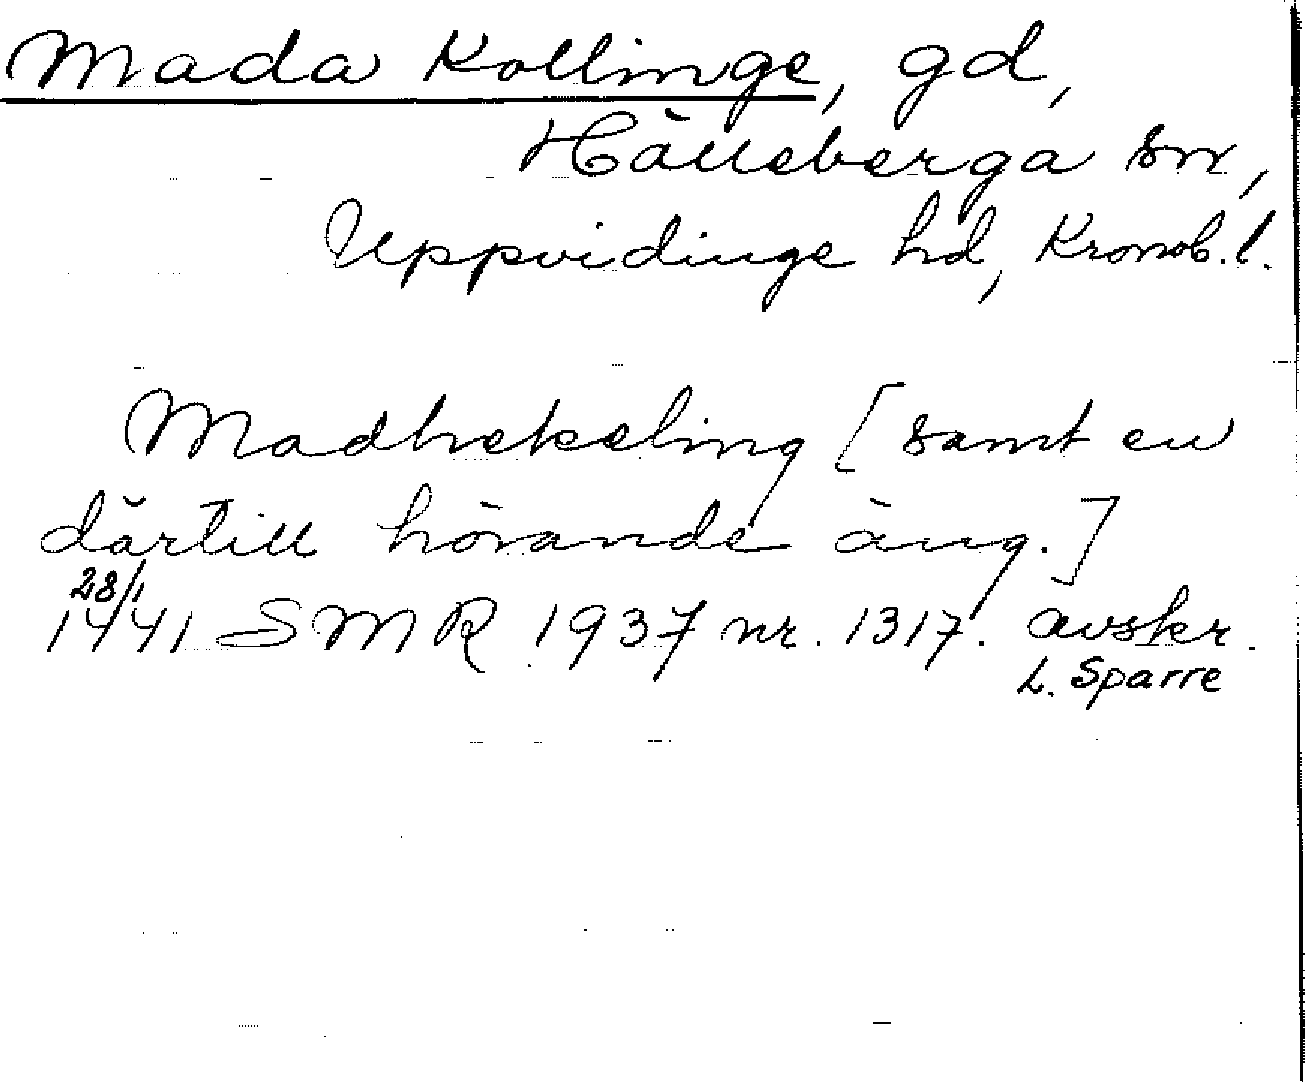 Mada Kollinge, gd,
Hälleberga sn,
Uppvidinge hd, Kronob. l.
Madhekeling [samt en
därtill hörande äng.]
28/1
1441 SMR 1937 nr. 1317. avskr.
L. Sparre